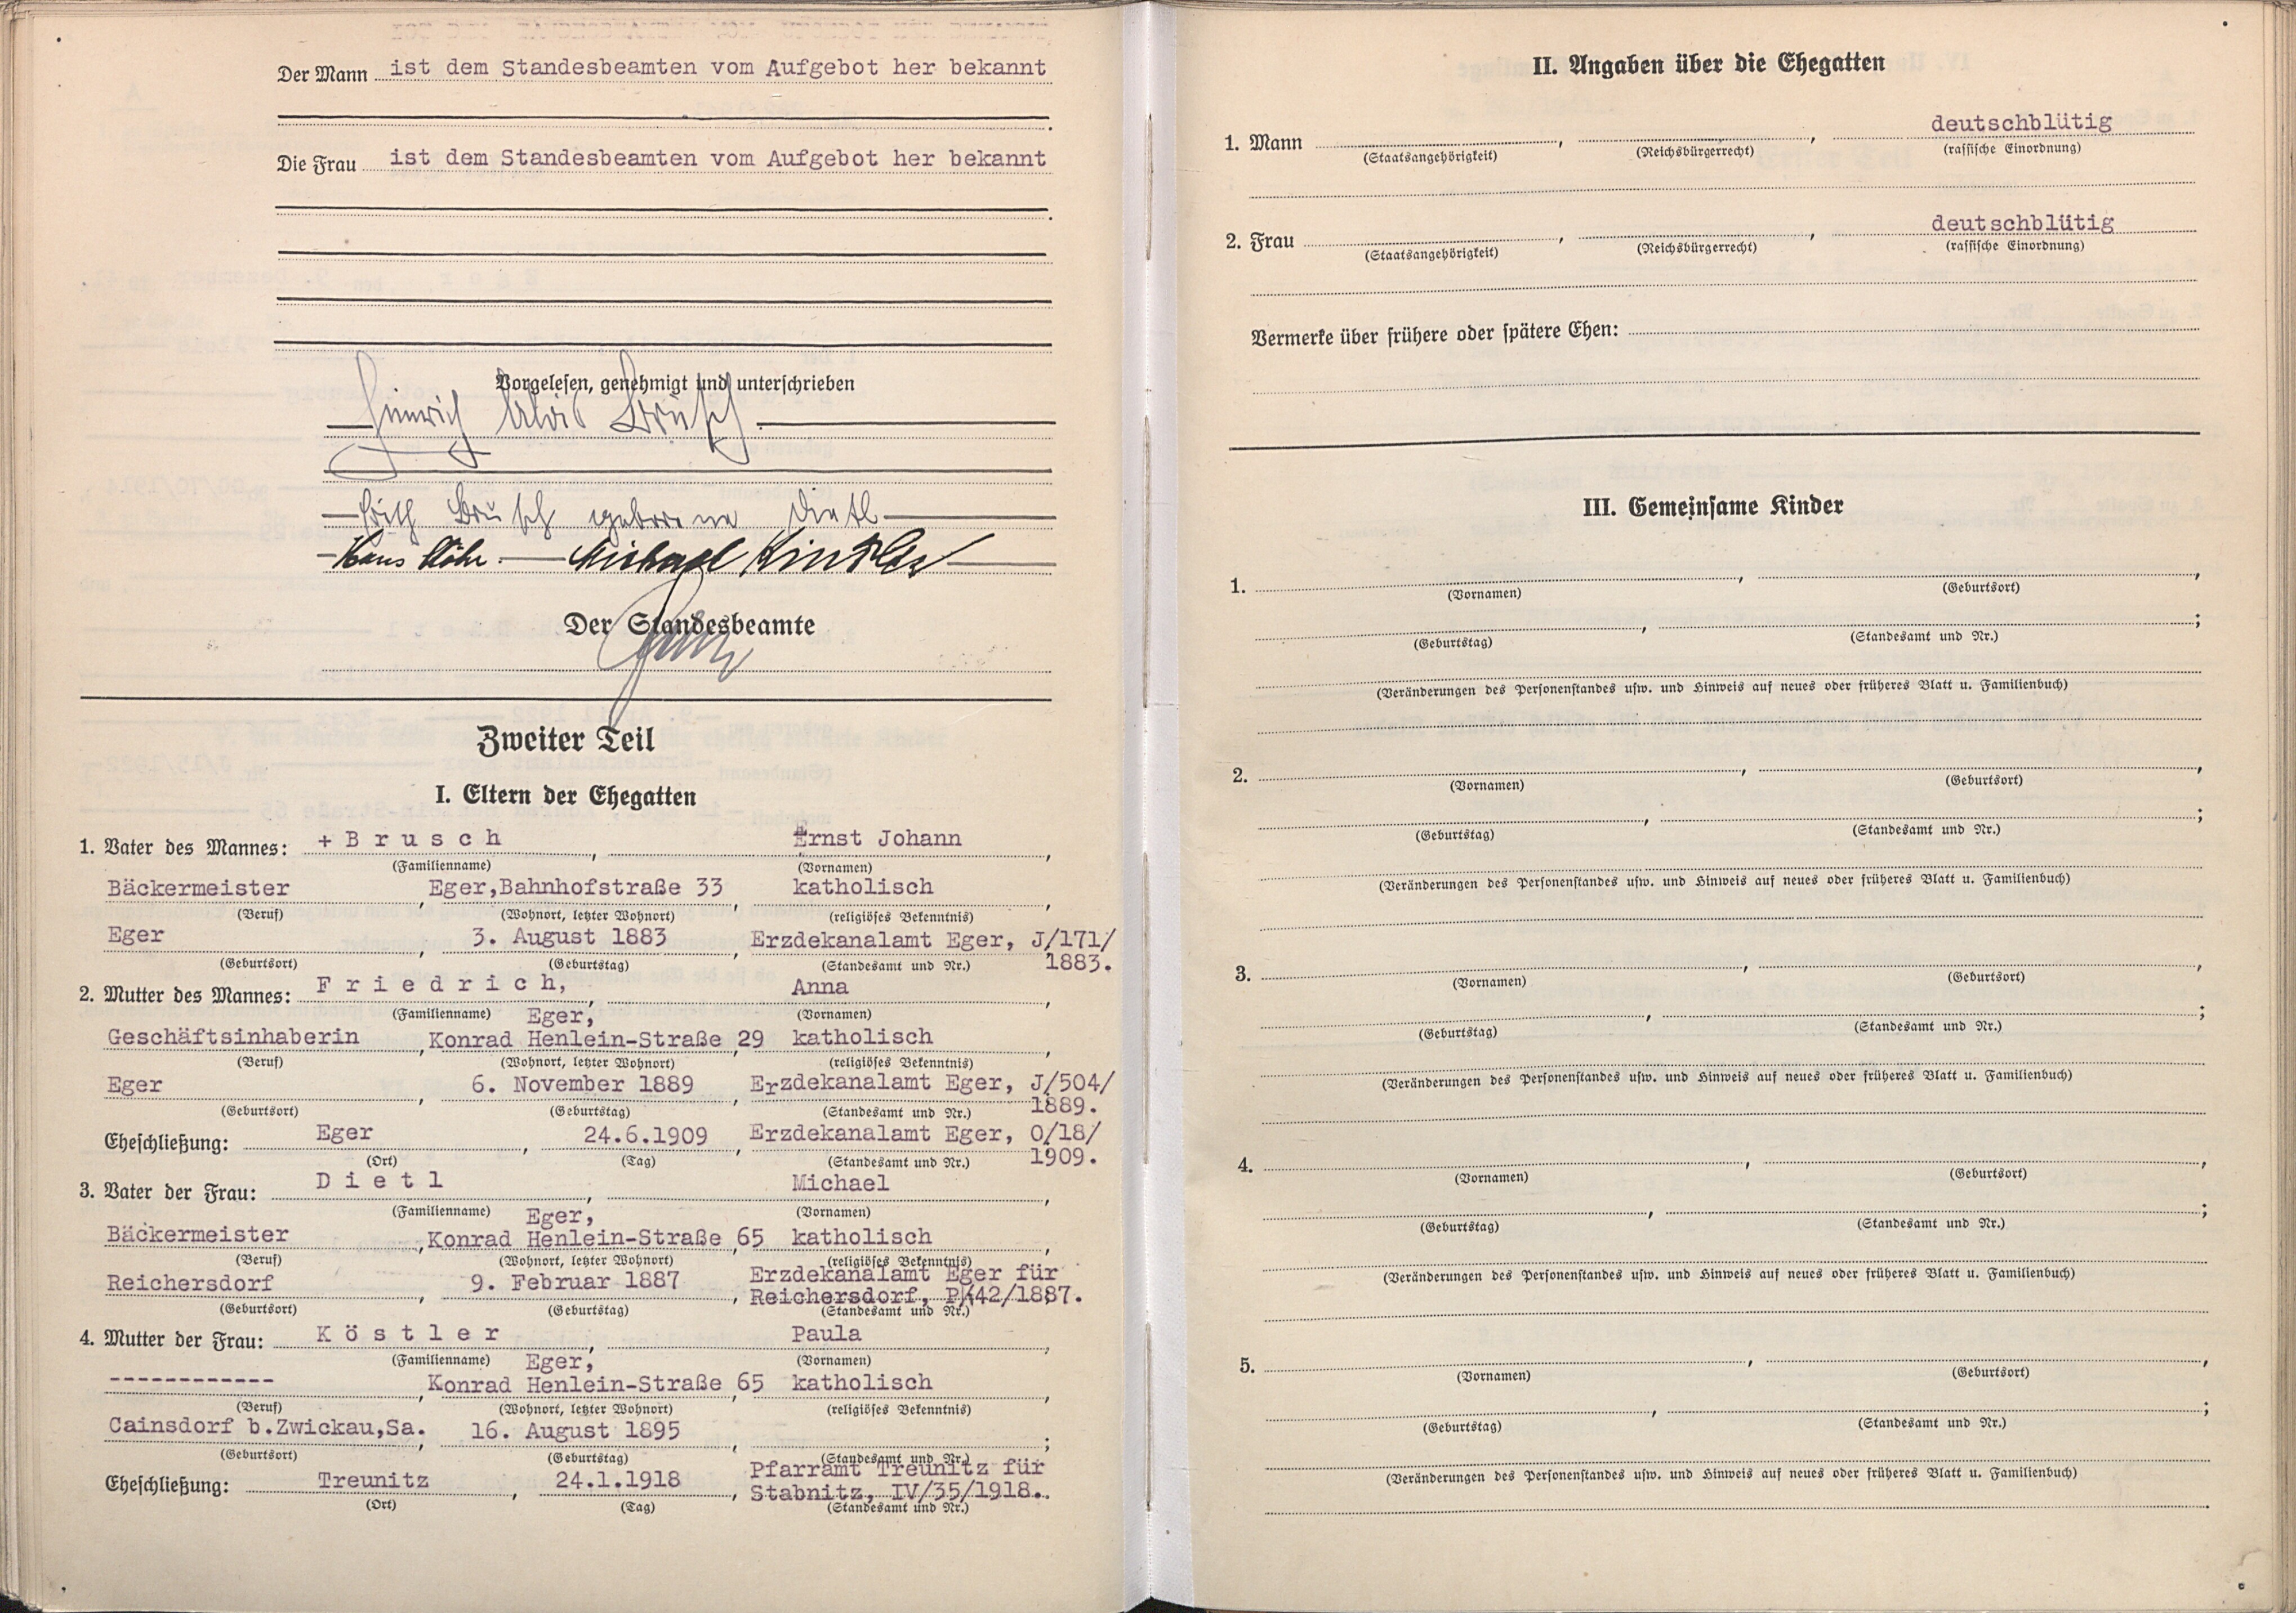 Der Mann ist dem Standesbeamten vom Aufgebot her bekannt
Die Frau ist dem Standesbeamten vom Aufgebot her bekannt
Vorgelesen, genehmigt und unterschrieben
Heinrich Alois Brusch
Brusch geborene Dietl
Hans Michael
Der Standesbeamte
Zweiter Teil
I. Eltern der Ehegatten
1. Vater des Mannes: + B r u s c h , Ernst Johann ,
(Familienname) (Vornamen)
Bäckermeister , Eger,Bahnhofstraße 33 , katholisch ,
(Beruf) (Wohnort, letzter Wohnort) (religiöses Bekenntnis)
Eger , 3. August 1883 , Erzdekanalamt Eger, J/171/
1883.
(Geburtsort) (Geburtstag) (Standesamt und Nr.)
2. Mutter des Mannes: F r i e d r i c h, , Anna ,
(Familienname) (Vornamen)
Eger,
Geschäftsinhaberin , Konrad Henlein-Straße 29 , katholisch ,
(Beruf) (Wohnort, letzter Wohnort) (religiöses Bekenntnis)
Eger , 6. November 1889 , Erzdekanalamt Eger, J/504/
1889.
(Geburtsort) (Geburtstag) (Standesamt und Nr.)
Eheschließung: Eger , 24.6.1909 , Erzdekanalamt Eger, O/18/
1909.
(Ort) (Tag) (Standesamt und Nr.)
3. Vater der Frau: D i e t l , Michael ,
(Familienname) (Vornamen)
Eger,
Bäckermeister , Konrad Henlein-Straße 65 , katholisch ,
(Beruf) (Wohnort, letzter Wohnort) (religiöses Bekenntnis)
Reichersdorf , 9. Februar 1887 , Erzdekanalamt Eger für
Reichersdorf, P/42/1887.
(Geburtsort) (Geburtstag) (Standesamt und Nr.)
4. Mutter der Frau: K ö s t l e r , Paula ,
(Familienname) (Vornamen)
Eger,
------------ , Konrad Henlein-Straße 65 , katholisch ,
(Beruf) (Wohnort, letzter Wohnort) (religiöses Bekenntnis)
Cainsdorf b.Zwickau,Sa. , 16. August 1895 , ;
(Geburtsort) (Geburtstag) (Standesamt und Nr.)
Eheschließung: Treunitz , 24.1.1918 , Pfarramt Treunitz für
Stabnitz, IV/35/1918.
(Ort) (Tag) (Standesamt und Nr.)
II. Angaben über die Ehegatten
1. Mann , , deutschblütig
(Staatsangehörigkeit) (Reichsbürgerrecht) (rassische Einordnung)
2. Frau , , deutschblütig
(Staatsangehörigkeit) (Reichsbürgerrecht) (rassische Einordnung)
Vermerke über frühere oder spätere Ehen:
III. Gemeinsame Kinder
1. , ,
(Vornamen) (Geburtsort)
, ;
(Geburtstag) (Standesamt und Nr.)
(Veränderungen des Personenstandes usw. und Hinweis auf neues oder früheres Blatt u. Familienbuch)
2. , ,
(Vornamen) (Geburtsort)
, ;
(Geburtstag) (Standesamt und Nr.)
(Veränderungen des Personenstandes usw. und Hinweis auf neues oder früheres Blatt u. Familienbuch)
3. , ,
(Vornamen) (Geburtsort)
, ;
(Geburtstag) (Standesamt und Nr.)
(Veränderungen des Personenstandes usw. und Hinweis auf neues oder früheres Blatt u. Familienbuch)
4. , ,
(Vornamen) (Geburtsort)
, ;
(Geburtstag) (Standesamt und Nr.)
(Veränderungen des Personenstandes usw. und Hinweis auf neues oder früheres Blatt u. Familienbuch)
5. , ,
(Vornamen) (Geburtsort)
, ;
(Geburtstag) (Standesamt und Nr.)
(Veränderungen des Personenstandes usw. und Hinweis auf neues oder früheres Blatt u. Familienbuch)